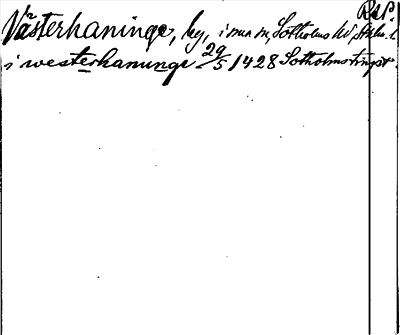 RAP.
Västerhaninge, by, i nn o m, Sotholms hd, Sthlm. l.
i westerhanunge 29/5 1428 Sotholms tingst.